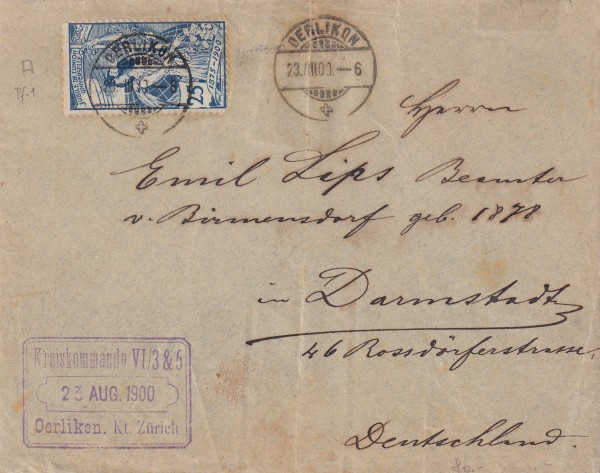 OERLIKON
1875-1900
25
OERLIKON
23.VIII.00.-6
A
Pf-1
Herrn
Emil Lips Beamter
v. Birmensdorf geb. 1878
in Darmstadt
46 Rossdörferstrasse,
Deutschland.
Kreiskommando VI/3 & 5
23 AUG. 1900
Oerlikon. Kt. Zürich
80.-